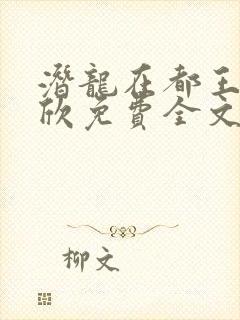 潛龍在都王
欣免費全文
柳文